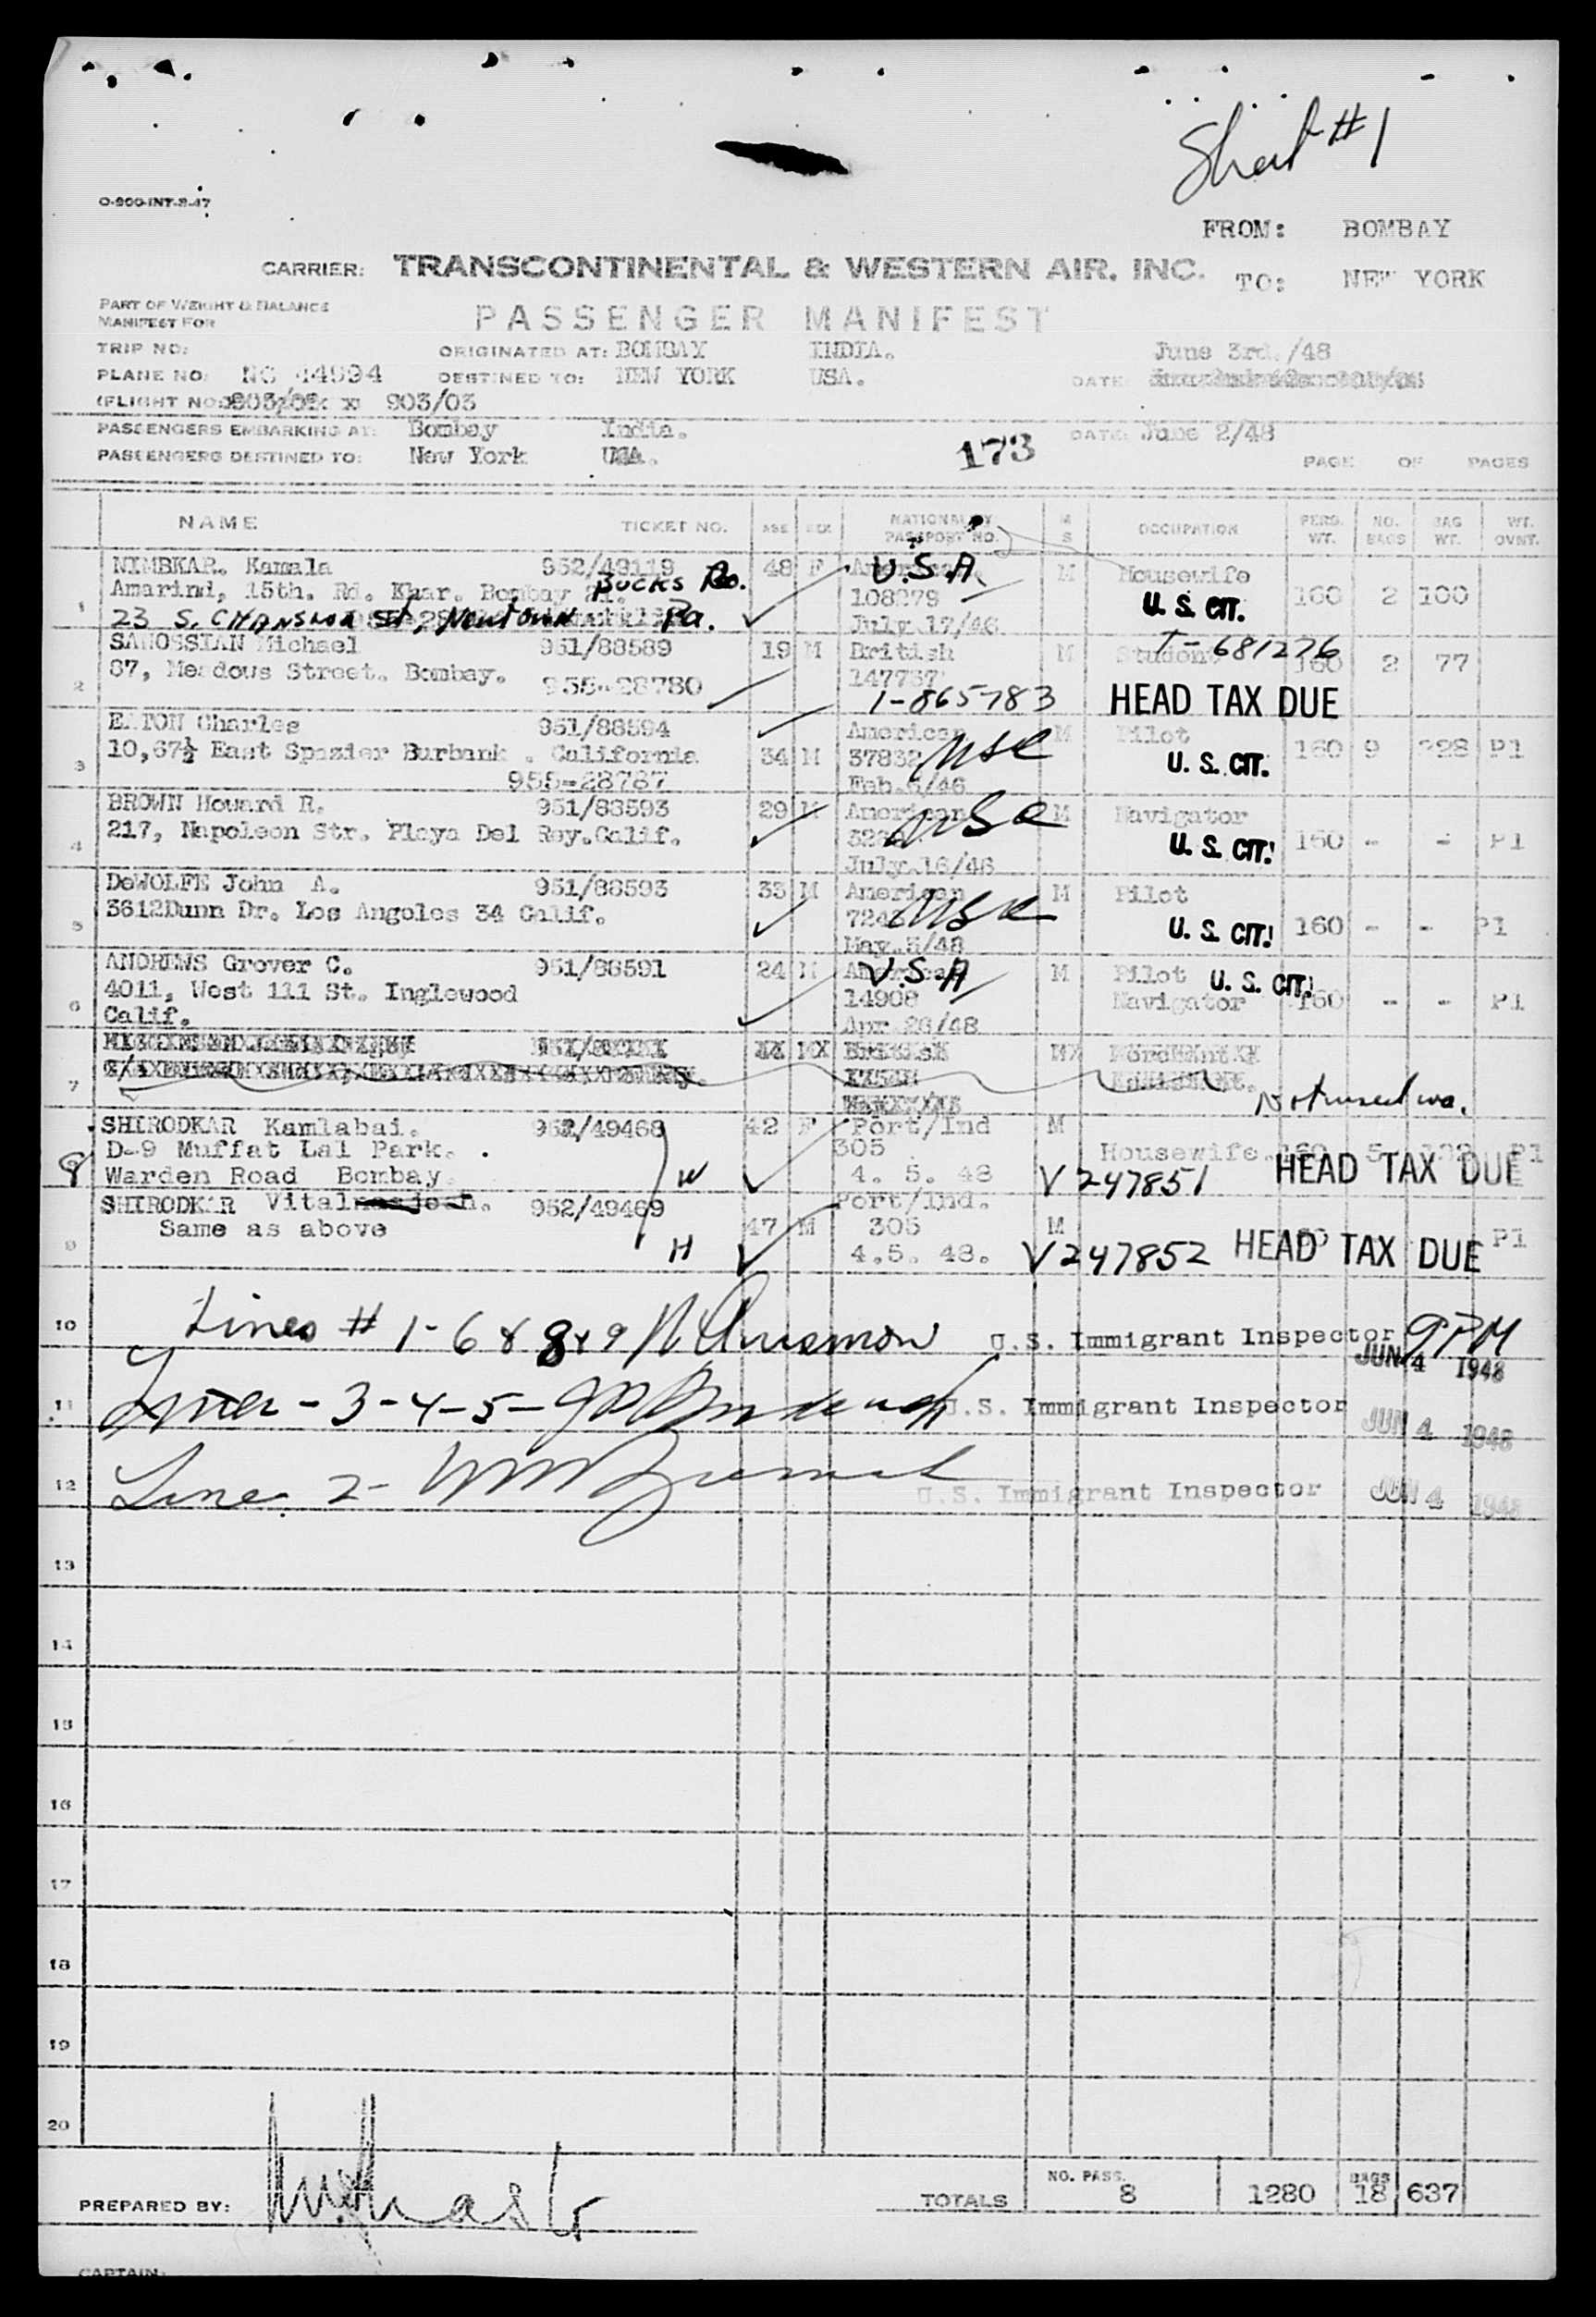 Sheet #1
O-900-INT-8-47
FROM: BOMBAY
CARRIER: TRANSCONTINENTAL & WESTERN AIR. INC.
TO: NEW YORK
PART OF WEIGHT & BALANCE
MANIFEST FOR
PASSENGER MANIFEST
TRIP NO:
ORIGINATED AT: BOMBAY INDIA. June 3rd./48
PLANE NO: NC 44994 DESTINED TO: NEW YORK USA. DATE
(FLIGHT NO: 903/03
PASSENGERS EMBARKING AT: Bombay India. DATE: June 2/48
PASSENGERS DESTINED TO: New York USA. 173 PAGE OF PAGES
NAME TICKET NO. AGE SEX NATIONALITY PASSPORT NO. M S OCCUPATION PERS. WT. NO. BAGS BAG WT. WT. OVNT.
NIMBKAR. Kamala 952/49119 48 F American. U.S.A. M Housewife
Amarind, 15th. Rd. Khar. Bombay BUCKS Co. 108279 U. S. CIT. 160 2 100
1 23 S. St, Newtown Pa. July.17/46
SANOSSIAN Michael 951/88589 19 M British M Student T-681276 160 2 77
2 87, Meadous Street. Bombay. 955-28780 147737 1-865783 HEAD TAX DUE
EATON Charles 951/88594 American M Pilot
3 10,67½ East Spazier Burbank . California 34 M 37832 USC U. S. CIT. 160 9 228 P1
955-28787 Feb.5/46
BROWN Howard R. 951/88593 29 M American USC M Navigator
4 217, Napoleon Str. Playa Del Rey.Calif. U. S. CIT. 160 - - P1
July.16/46
DeWOLFE John A. 951/88593 33 M American USC M Pilot
5 3612Dunn Dr. Los Angeles 34 Calif. U. S. CIT. 160 - - P1
May.5/48
ANDREWS Grover C. 951/88591 24 M American U.S.A M Pilot U. S. CIT.
6 4011, West 111 St. Inglewood 14908 Navigator 160 - - P1
Calif. Apr.26/48
7 Not used
SHIRODKAR Kamlabai. 952/49468 42 F Port/Ind M
D-9 Muffat Lal Park. 305 Housewife. 160 5 P1
8 Warden Road Bombay. W 4. 5. 48 V247851 HEAD TAX DUE
SHIRODKAR Vital 952/49469 Port/Ind.
9 Same as above 47 M 305 M P1
H 4.5. 48. V247852 HEAD TAX DUE
10 Lines # 1-6 & 8 & 9 U.S. Immigrant Inspector 9PM
JUN 4 1948
11 Lines - 3-4-5- U.S. Immigrant Inspector JUN 4 1948
12 Line 2- U.S. Immigrant Inspector JUN 4 1948
13
14
15
16
17
18
19
20
PREPARED BY: TOTALS NO. PASS. 8 1280 BAGS 18 637
CAPTAIN: